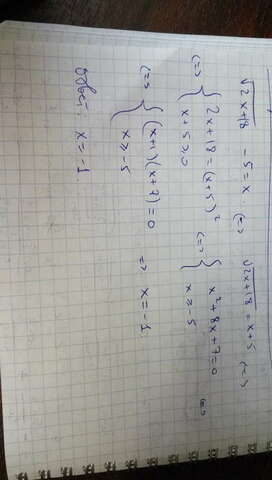 √2x+18 - 5 = x <=> √2x+18 = x+5 <=>
<=> { 2x+18 = (x+5)² <=> { x²+8x+7=0 <=>
x+5 ≥ 0 x ≥ -5
<=> { (x+1)(x+7)=0 => x = -1
x ≥ -5
Ответ: x = -1